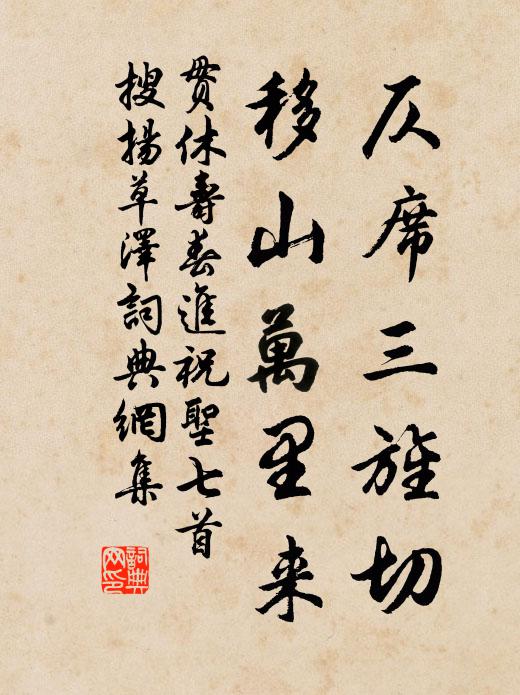 仄席三旌切
移山萬里来
貫休壽春進祝聖七首
搜揚草澤詞典網集
詞典
网印